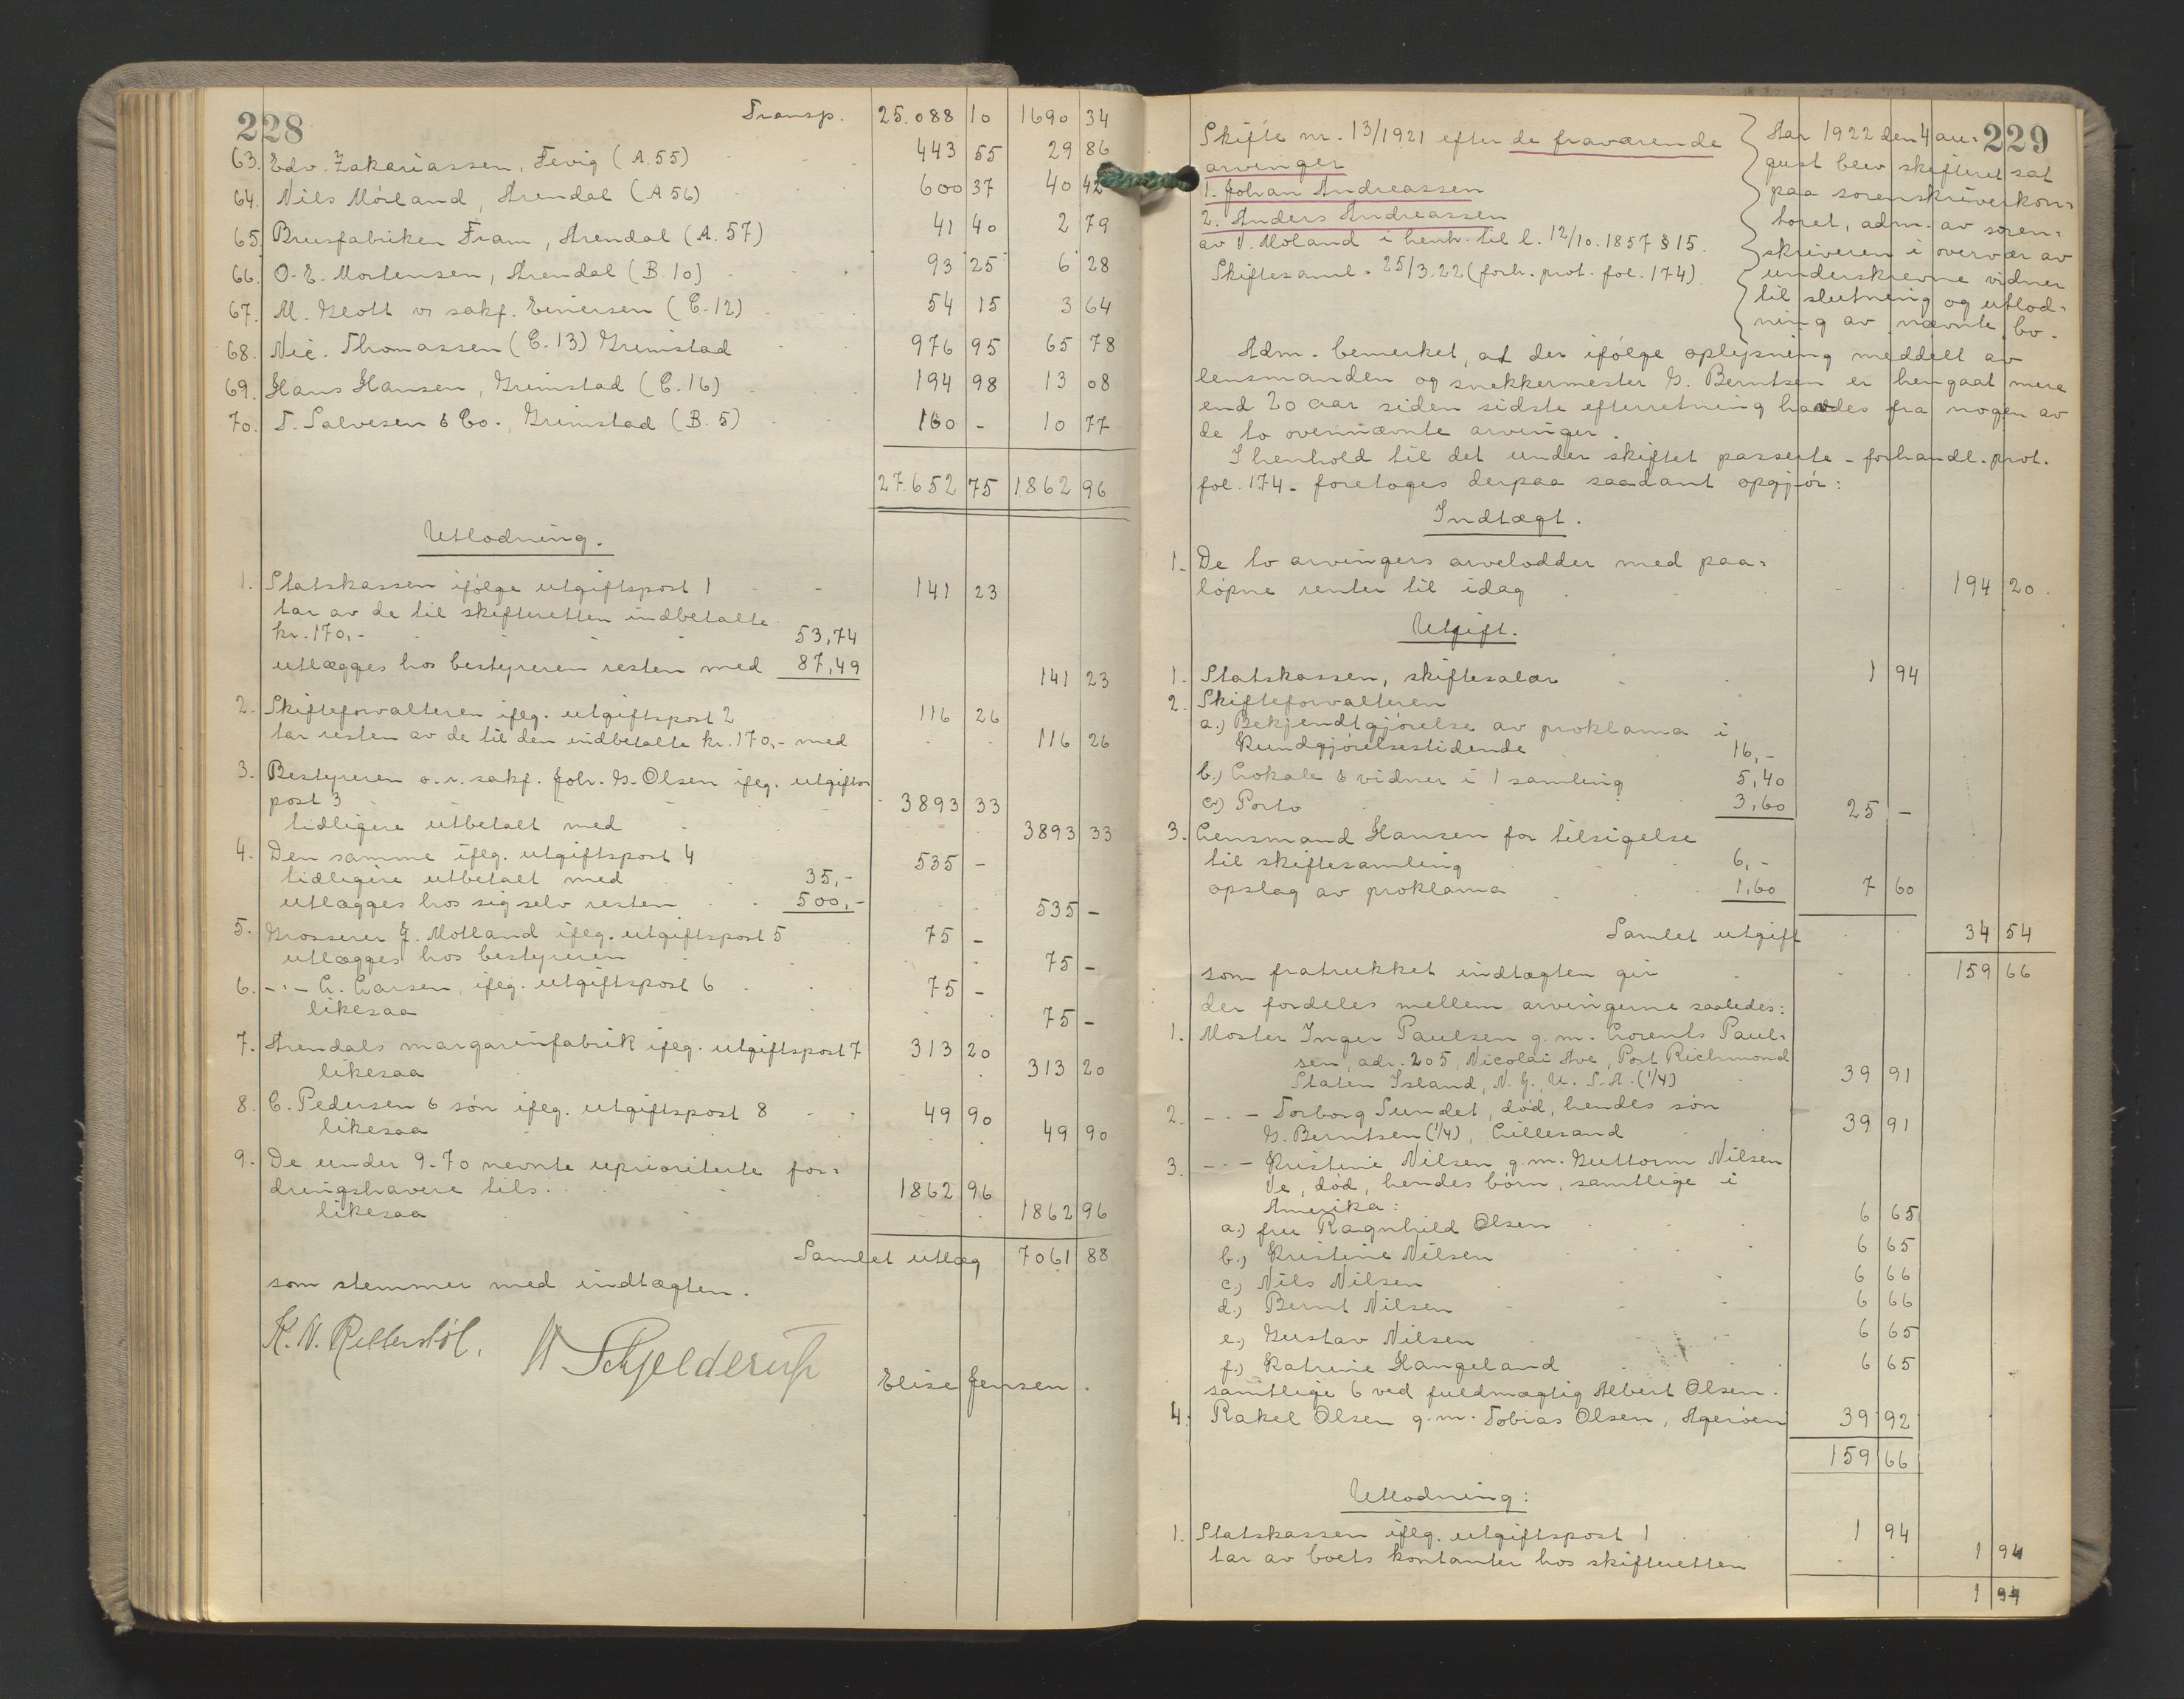 228
Transp. 25.088 10 1690 34
63. Edv. Zakariassen, Fevig (A.55) 443 55 29 86
64. Nils Mørland, Arendal (A 56) 600 37 40 42
65. Brusfabriken Fram, Arendal (A. 57) 41 40 2 79
66. O. E. Mortensen, Arendal (B. 10) 93 25 6 28
67. M. Glott v. sakf. Einersen (C. 12) 54 15 3 64
68. Nic. Thomassen (C. 13) Grimstad 976 95 65 78
69. Hans Hansen, Grimstad (C. 16) 194 98 13 08
70. T. Salvesen & Co., Grimstad (B. 5) 160 - 10 77
27.652 75 1862 96
Utlodning.
1. Statskassen ifølge utgiftspost 1 141 23
tar av de til skifteretten indbetalte
kr. 170,- 53,74
utlægges hos bestyreren resten med 87,49 141 23
2. Skifteforvalteren iflg. utgiftspost 2 116 26
tar resten av de til den indbetalte kr. 170,- med 116 26
3. Bestyreren o.r. sakf. Joh. G. Olsen iflg. utgifts-
post 3 3893 33
tidligere utbetalt med 3893 33
4. Den samme iflg. utgiftspost 4 535 -
tidligere utbetalt med 35,-
utlægges hos sig selv resten 500,- 535 -
5. Grosserer J. Molland iflg. utgiftspost 5 75 -
utlægges hos bestyreren 75 -
6. -"- L. Larsen, iflg. utgiftspost 6 75 -
likesaa 75 -
7. Arendals margarinfabrik iflg. utgiftspost 7 313 20
likesaa 313 20
8. C. Pedersen & søn iflg. utgiftspost 8 49 90
likesaa 49 90
9. De under 9-70 nevnte uprioriterte for-
dringshavere tils. 1862 96
likesaa 1862 96
Samlet utlæg 7061 88
som stemmer med indtægten.
K. N. Retterstøl. Schjelderup
Elise Jensen.
229
Skifte nr. 13/1921 efter de fraværende
arvinger
1. Johan Andreassen
2. Anders Andreassen
av V. Moland i henh. til l. 12/10. 1857 § 15.
Skiftesaml. 25/3.22 (forh. prot. fol. 174)
Aar 1922 den 4 au-
gust blev skifteret sat
paa sorenskriverkon-
toret, adm. av soren-
skriveren i overvær av
underskrevne vidner
til slutning og utlod-
ning av nævnte bo.
Adm. bemerket, at der ifølge oplysning meddelt av
lensmanden og snekkermester G. Berntsen er hengaat mere
end 20 aar siden sidste efterretning havdes fra nogen av
de to ovennævnte arvinger.
I henhold til det under skiftet passerte - forhandl. prot.
fol. 174 - foretoges derpaa saadant opgjør:
Indtægt.
1. De to arvingers arvelodder med paa-
løpne renter til idag 194 20.
Utgift.
1. Statskassen, skiftesalær 1 94
2. Skifteforvalteren
a.) Bekjendtgjørelse av proklama i
Kundgjørelsestidende 16,-
b.) Lokale & vidner i 1 samling 5,40
c.) Porto 3,60 25 -
3. Lensmand Hansen for tilsigelse
til skiftesamling 6,-
opslag av proklama 1,60 7 60
Samlet utgift 34 54
som fratrukket indtægten gir 159 66
der fordeles mellem arvingerne saaledes:
1. Moster Inger Paulsen g.m. Lorents Paul-
sen, adr. 205, Nicolai Ave, Port Richmond
Staten Island, N.J., U. S. A. (1/4) 39 91
2. -"- Torborg Sundet, død, hendes søn
G. Berntsen (1/4), Lillesand 39 91
3. -"- Kristine Nilsen g.m. Guttorm Nilsen
Ve, død, hendes børn, samtlige i
Amerika:
a.) fru Ragnhild Olsen 6 65
b.) Kristine Nilsen 6 65
c.) Nils Nilsen 6 66
d.) Bernt Nilsen 6 66
e.) Gustav Nilsen 6 65
f.) Katrine Hangeland 6 65
samtlige 6 ved fuldmægtig Albert Olsen.
4. Rakel Olsen g.m. Tobias Olsen, Agerøen 39 92
159 66
Utlodning:
1. Statskassen iflg. utgiftspost 1 1 94
tar av boets kontanter hos skifteretten 1 94
1 94